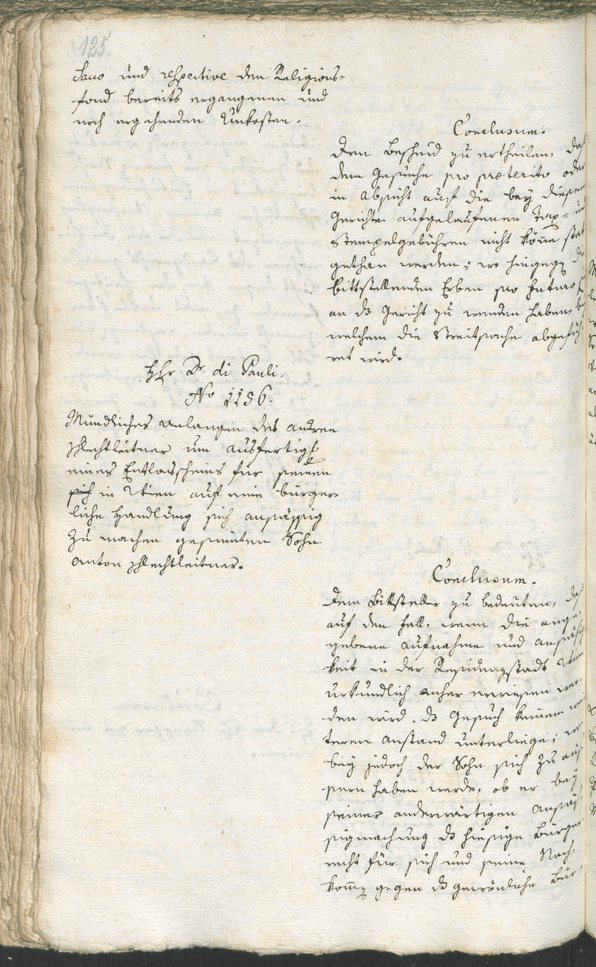 125.
Saco und respective den Religions-
fond bereits ergangenen und
noch ergehenden Unkosten.
Conclusum.
Dem Bescheid zu ertheilen, daß
dem Gesuche pro praeterito oder
in Absicht auf die bey diesem
Gerichte aufgelaufenen Tax- und
Stempelgebühren nicht könne statt
gethan werden; wo hingegen die
bittstellenden Erben pro futuro sich
an das Gericht zu wenden haben, bey
welchem die Streitsache abgefüh-
ret wird.
Hhr Dr. di Pauli.
No 1156.
Mündliches Anlangen des Andreen
Schlechtleitner um Ausfertigung
eines Entlaßscheins für seinen
sich in Wien auf eine bürger-
liche Handlung sich ansässig
zu machen gesinnten Sohn
Anton Schlechtleitner.
Conclusum.
Dem Bittsteller zu bedeuten, daß
auf den Fall, wenn die ange-
gebene Aufnahme und Ansäßig-
keit in der Residenzstadt Wien
urkundlich anher erwiesen wer-
den wird, das Gesuch keinem wei-
teren Anstand unterliege; wo
bey jedoch der Sohn sich zu äus-
sern haben werde, ob er bey
seiner anderwärtigen Ansäs-
sigmachung das hiesige Bürger
recht für sich und seine Nach-
kommen gegen das gewöhnliche Bür-